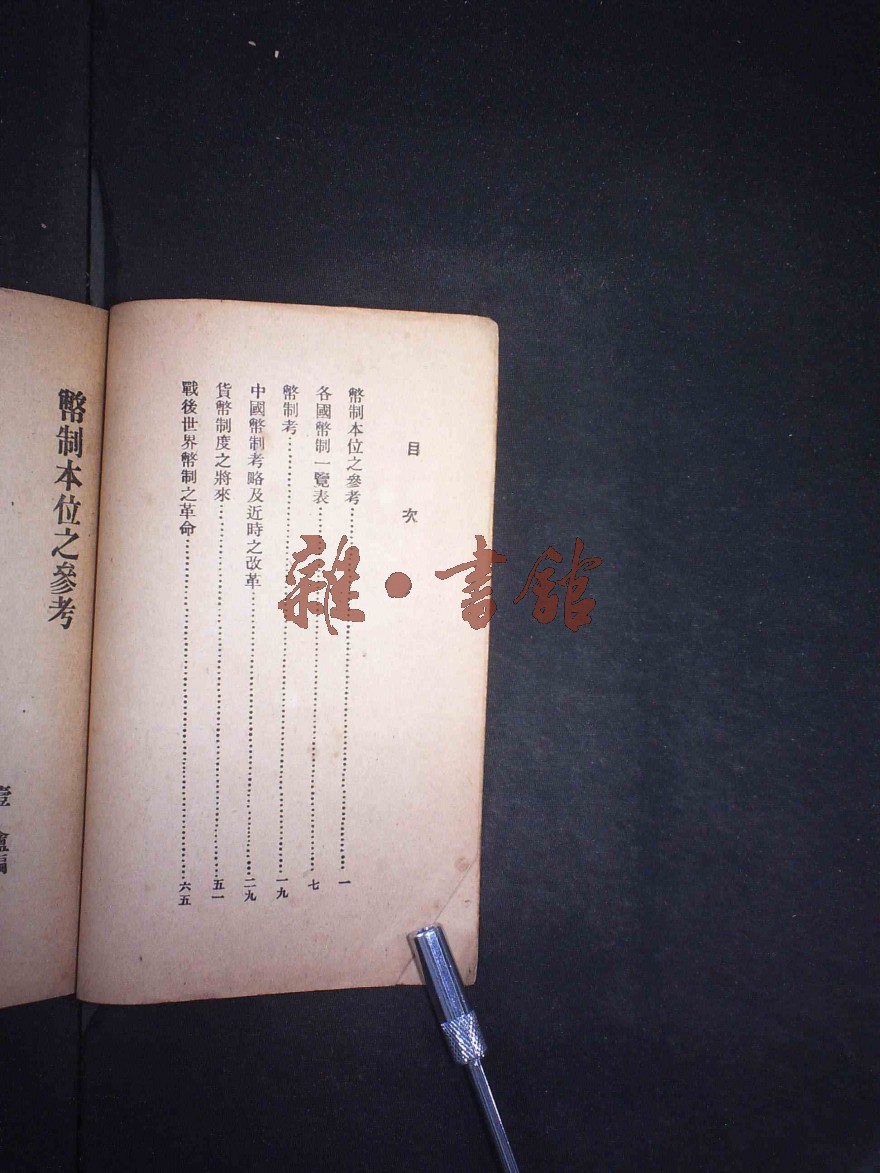 目次
幣制本位之參考 一
各國幣制一覽表 七
幣制考 一九
中國幣制考略及近時之改革 二九
貨幣制度之將來 五一
戰後世界幣制之革命 六五
幣制本位之參考
盦編
雜·書館